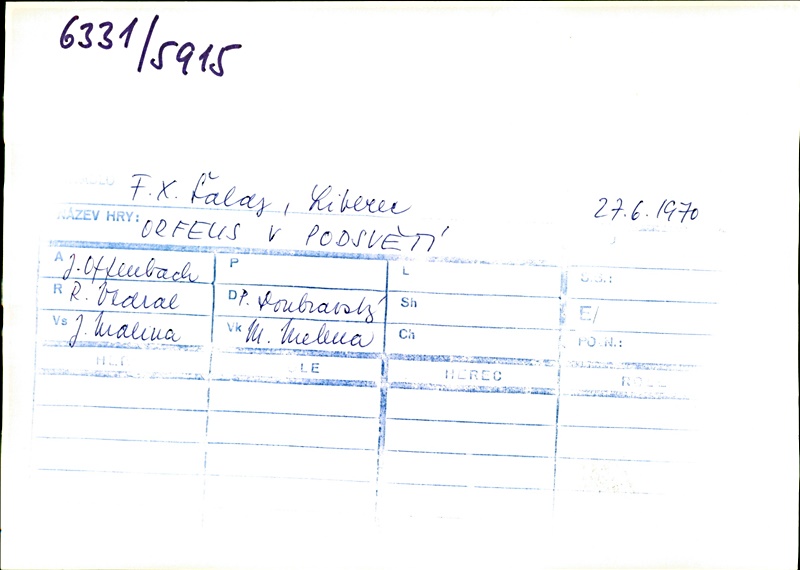 6331/5915
F. X. Šalda, Liberec 27.6.1970
NÁZEV HRY: ORFEUS V PODSVĚTÍ
A J. Offenbach P L
R R. Vedral D P. Doubravský Sh E/
Vs J. Malina Vk M. Melena Ch POZN.:
HEREC ROLE